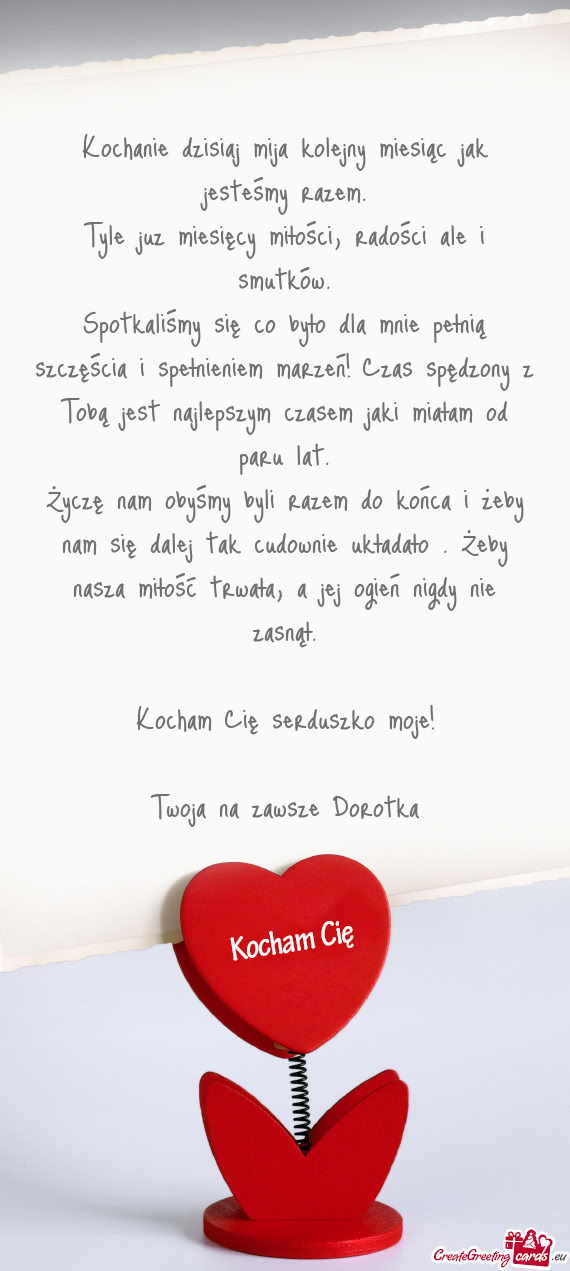 Kochanie dzisiaj mija kolejny miesiąc jak
jesteśmy razem.
Tyle juz miesięcy miłości, radości ale i
smutków.
Spotkaliśmy się co było dla mnie pełnią
szczęścia i spełnieniem marzeń! Czas spędzony z
Tobą jest najlepszym czasem jaki miałam od
paru lat.
Życzę nam obyśmy byli razem do końca i żeby
nam się dalej tak cudownie układało . Żeby
nasza miłość trwała, a jej ogień nigdy nie
zasnął.
Kocham Cię serduszko moje!
Twoja na zawsze Dorotka
Kocham Cię
CreateGreeting cards .eu